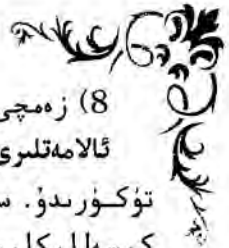 8) زەمچى
ئالامەتلىرى
تۈكۈرىدۇ. س